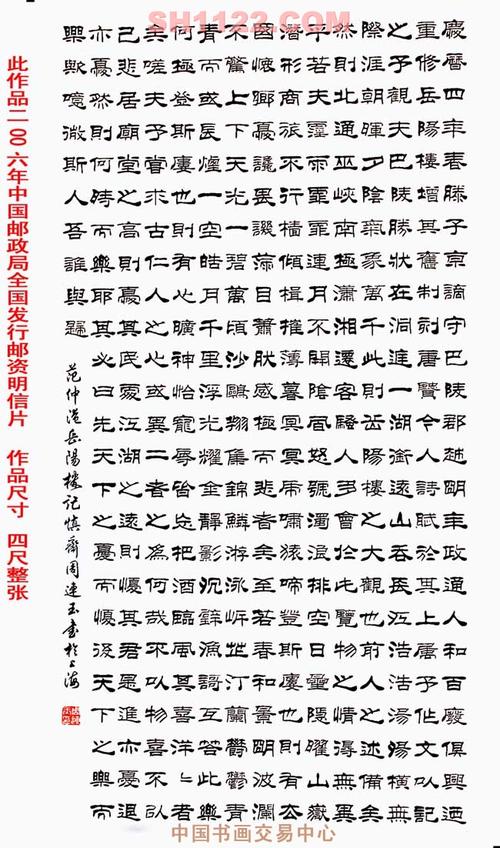 SH1122.COM
慶曆四年春滕子京謫守巴陵郡越明年政通人和百廢俱興迺
重修岳陽樓增其舊制刻唐賢今人詩賦於其上屬予作文以記
之予觀夫巴陵勝狀在洞庭一湖銜遠山吞長江浩浩湯湯橫無
際涯朝暉夕陰氣象萬千此則岳陽樓之大觀也前人之述備矣
然則北通巫峽南極瀟湘遷客騷人多會於此覽物之情得無異
乎若夫霪雨霏霏連月不開陰風怒號濁浪排空日星隱耀山嶽
潛形商旅不行檣傾楫摧薄暮冥冥虎嘯猿啼登斯樓也則有去
國懷鄉憂讒畏譏滿目蕭然感極而悲者矣至若春和景明波瀾
不驚上下天光一碧萬頃沙鷗翔集錦鱗游泳岸芷汀蘭鬱鬱青
青而或長煙一空皓月千里浮光耀金靜影沉璧漁歌互答此樂
何極登斯樓也則有心曠神怡寵辱皆忘把酒臨風其喜洋洋者
矣嗟夫予嘗求古仁人之心或異二者之為何哉不以物喜不以
己悲居廟堂之高則憂其民處江湖之遠則憂其君是進亦憂退
亦憂然則何時而樂耶其必曰先天下之憂而憂後天下之樂而
樂歟噫微斯人吾誰與歸
范仲淹岳陽樓記慎齋周連玉書於上海
此作品二00六年中国邮政局全国发行邮资明信片 作品尺寸 四尺整张
中国书画交易中心